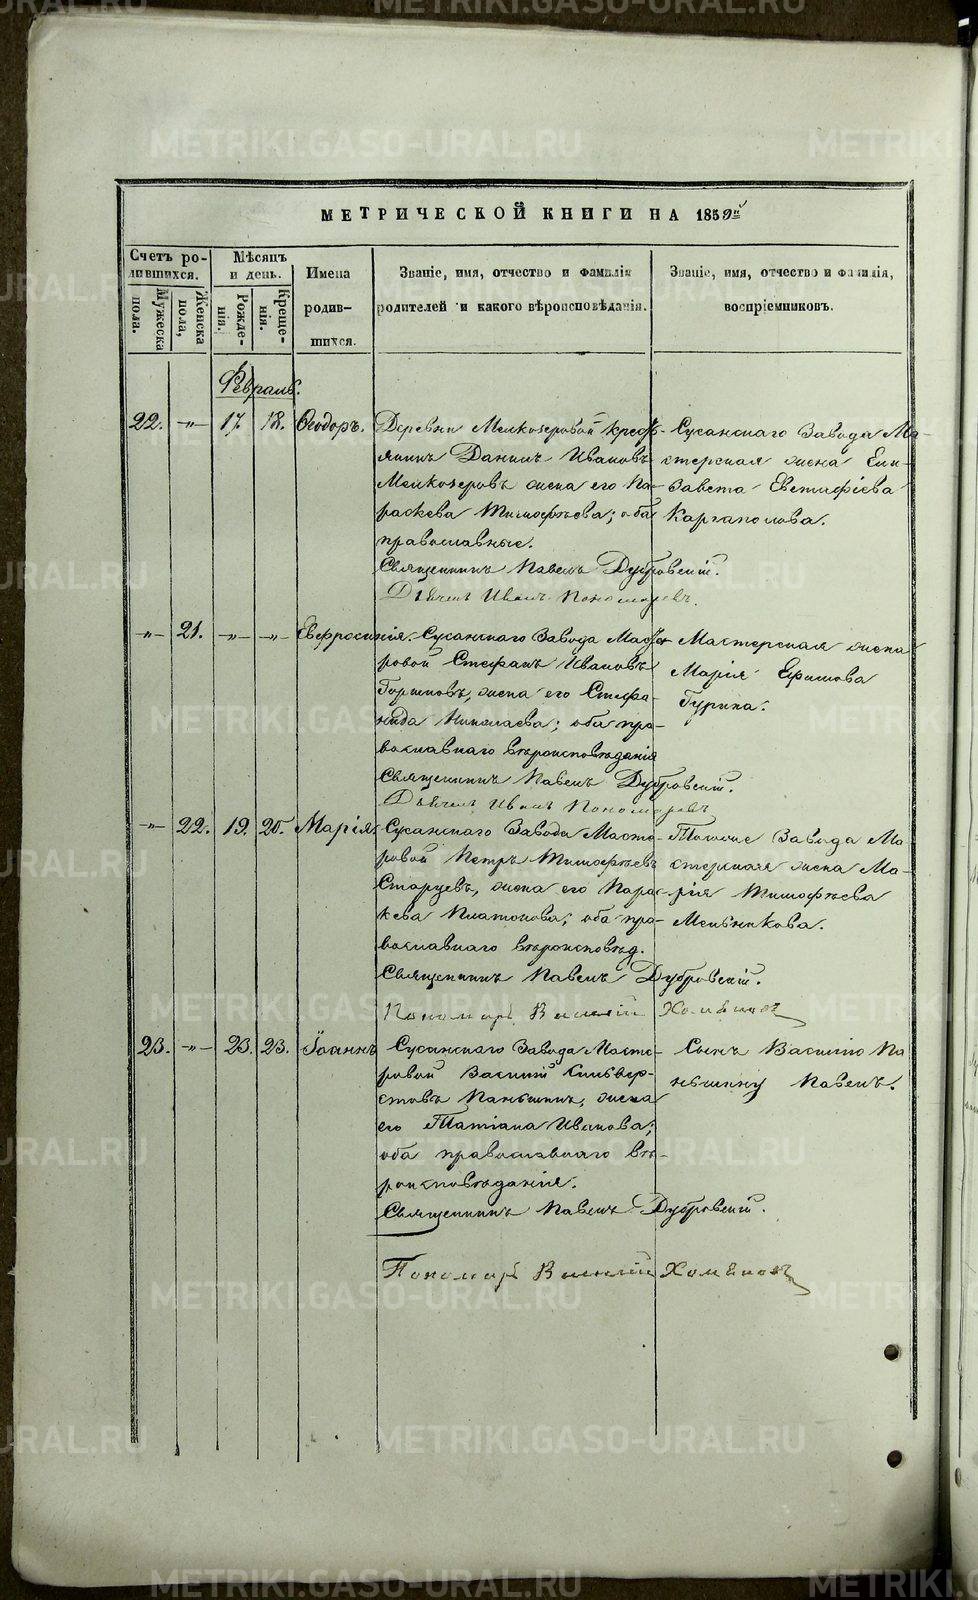 МЕТРИЧЕСКОЙ КНИГИ НА 1859й
Счетъ ро-
дившихся.
Мужеска пола.
Женска пола,
Мѣсяцъ
и день.
Рожде-
нія.
Креще-
нія.
Имена
родив-
шихся.
Званіе, имя, отчество и фамилія
родителей и какого вѣроисповѣданія.
Званіе, имя, отчество и фамилія,
воспріемниковъ.
Февраль.
22. -"- 17. 18. Ѳеодоръ.
Деревни Мелкозеровой кресть-
янинъ Даниилъ Ивановъ
Мелкозеровъ жена его Па-
раскева Тимофѣева; оба
православные.
Священникъ Павелъ Дубровскій.
Дьячекъ Иванъ Пономаревъ.
Сусанскаго Завода Ма-
стерская жена Ели-
завета Евстифіева
Каргаполова.
-"- 21. -"- -"- Евфросинія.
Сусанскаго Завода Масте-
ровой Стефанъ Ивановъ
Горшковъ, жена его Стефа-
нида Николаева; оба пра-
вославнаго вѣроисповѣданія
Священникъ Павелъ Дубровскій.
Дьячекъ Иванъ Пономаревъ
Мастерская жена
Марія Ефимова
Гурина.
-"- 22. 19. 20. Марія.
Сусанскаго Завода Масте-
ровой Петръ Тимофѣевъ
Старцевъ, жена его Пара-
скева Платонова; оба пра-
вославнаго вѣроисповѣд.
Священникъ Павелъ Дубровскій.
Пономарь Василій Хомяковъ
Тогоже Завода Ма-
стерская жена Ма-
рія Тимофѣева
Мельникова.
23. -"- 23. 23. Іоаннъ
Сусанскаго Завода Масте-
ровой Василій Сильвер-
стовъ Паньшинъ, жена
его Татіана Иванова;
оба православнаго вѣ-
роисповѣданія.
Священникъ Павелъ Дубровскій.
Пономарь Василій Хомяковъ
Сынъ Василію Па
ньшину Павелъ.
METRIKI.GASO-URAL.RU